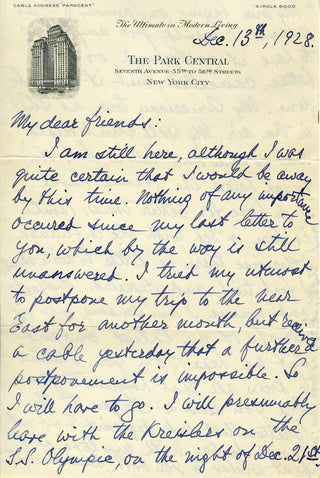 CABLE ADDRESS "PARKCENT"
CIRCLE 8000
The Ultimate in Modern Living
Dec. 13th, 1928.
THE PARK CENTRAL
SEVENTH AVENUE · 55TH TO 56TH STREETS
NEW YORK CITY
My dear friends:
I am still here, although I was
quite certain that I would be away
by this time. Nothing of any importance
occured since my last letter to
you, which by the way is still
unanswered. I tried my utmost
to postpone my trip to the near
East for another month, but received
a cable yesterday that a further
postponement is impossible. So
I will have to go. I will presumably
leave with the Kreislers on the
S.S. Olympic, on the night of Dec. 21st.